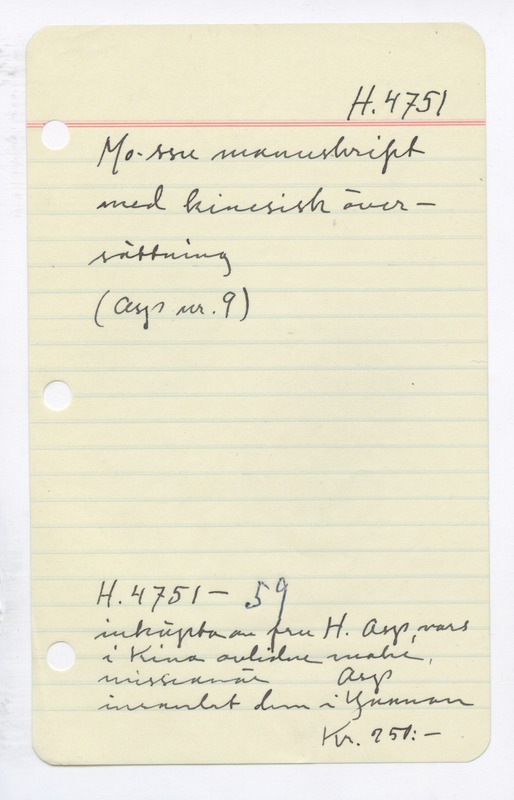 H.4751
Mo-ssu manuskript
med kinesisk över-
sättning
(Asp nr. 9)
H.4751 – 59
inköpta av fru H. Asp, vars
i Kina avlidne make,
missionär Asp
insamlat dem i Yunnan
Kr. 250:-